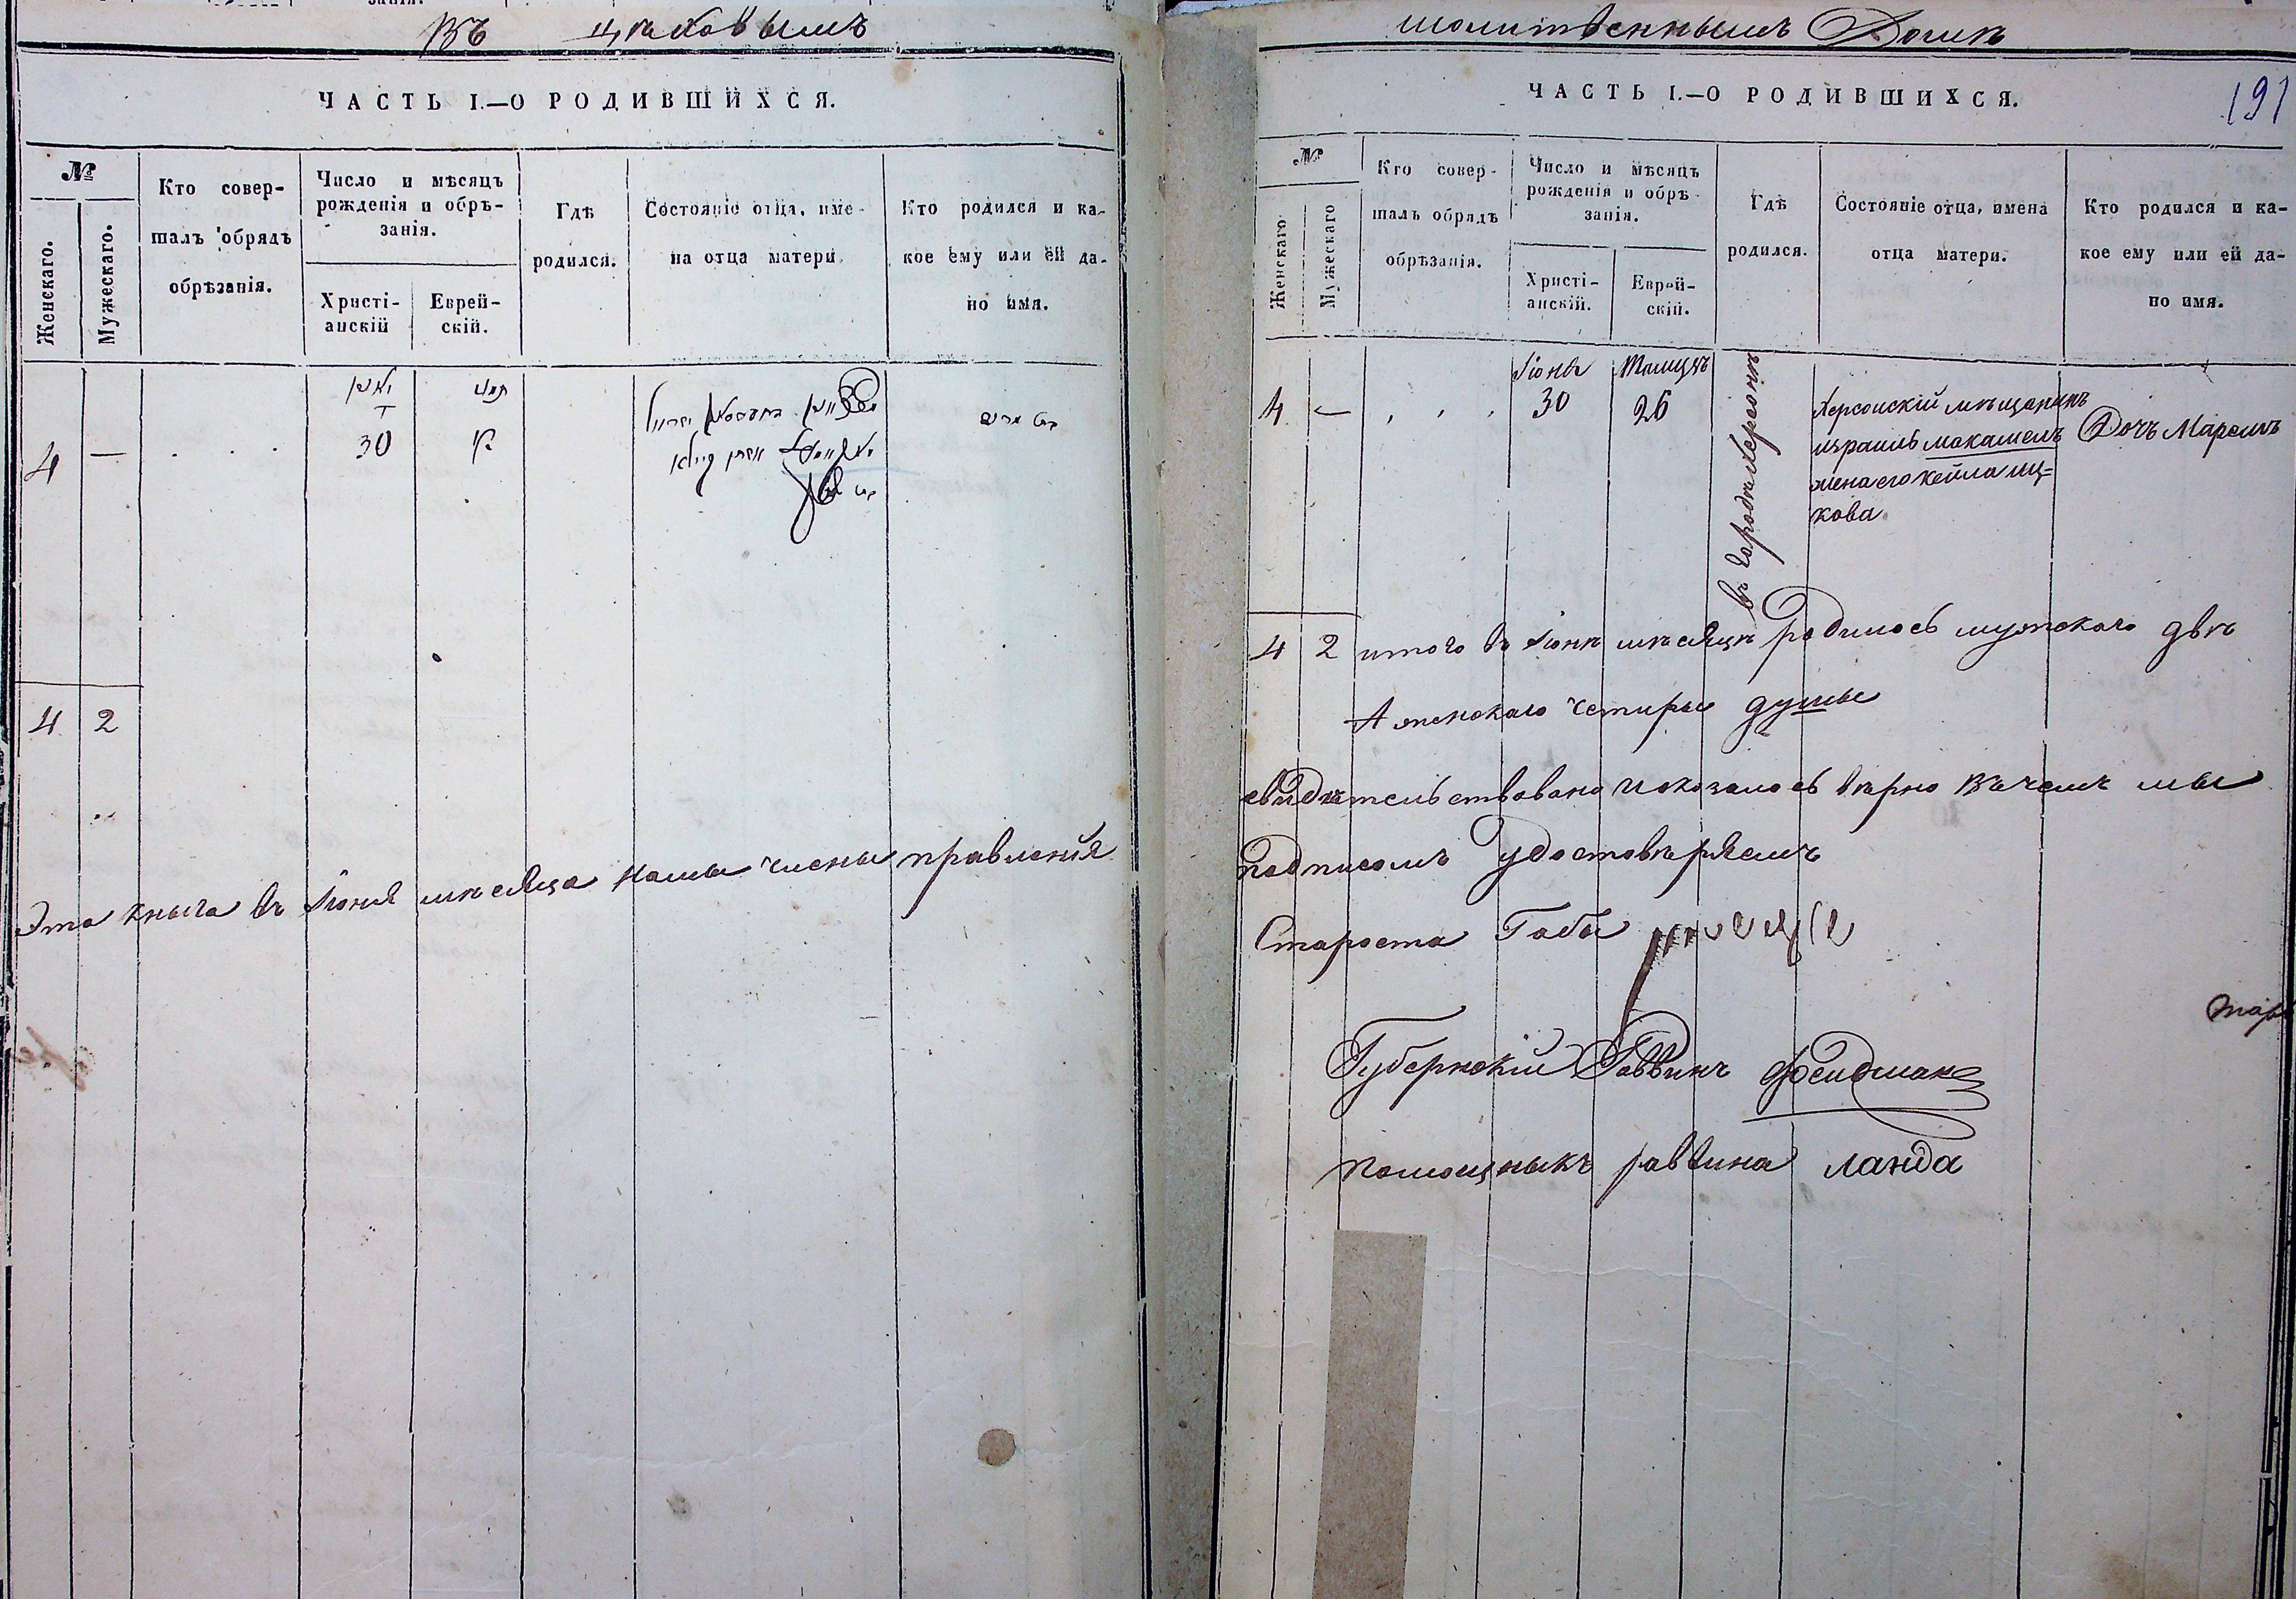 Въ цѣховымъ
ЧАСТЬ I.—О РОДИВШИХСЯ.
№
Женскаго.
Мужескаго.
Кто совер-
шалъ обрядъ
обрѣзанія.
Число и мѣсяцъ
рожденія и обрѣ-
занія.
Христі-
анскій
Еврей-
скій.
Гдѣ
родился.
Состояніе отца, име-
на отца матери.
Кто родился и ка-
кое ему или ей да-
но имя.
4 —
30
4 2
Эта кныга въ Іюня мѣсяца намы члены правленія
молитвеннымъ Домѣ
191
ЧАСТЬ I.—О РОДИВШИХСЯ.
№
Женскаго
Мужескаго
Кто совер-
шалъ обрядъ
обрѣзанія.
Число и мѣсяцъ
рожденія и обрѣ-
занія.
Христі-
анскій.
Еврей-
скій.
Гдѣ
родился.
Состояніе отца, имена
отца матери.
Кто родился и ка-
кое ему или ей да-
но имя.
4 —
Іюнь
30
26
въ городѣ Херсонѣ
Херсонскій мѣщанинъ
израиль
жена его кейла иц-
кова
Дочь Маремъ
4 2 итого въ Іюнѣ мѣсяцѣ родилось мужскаго двѣ
А женскаго четыры душы
свидѣтельствовано и оказалось вѣрно въ чемъ мы
подписомъ удостовѣряемъ
Староста Габы
Губернскій Раввинъ
помощныкъ раввина Ланда